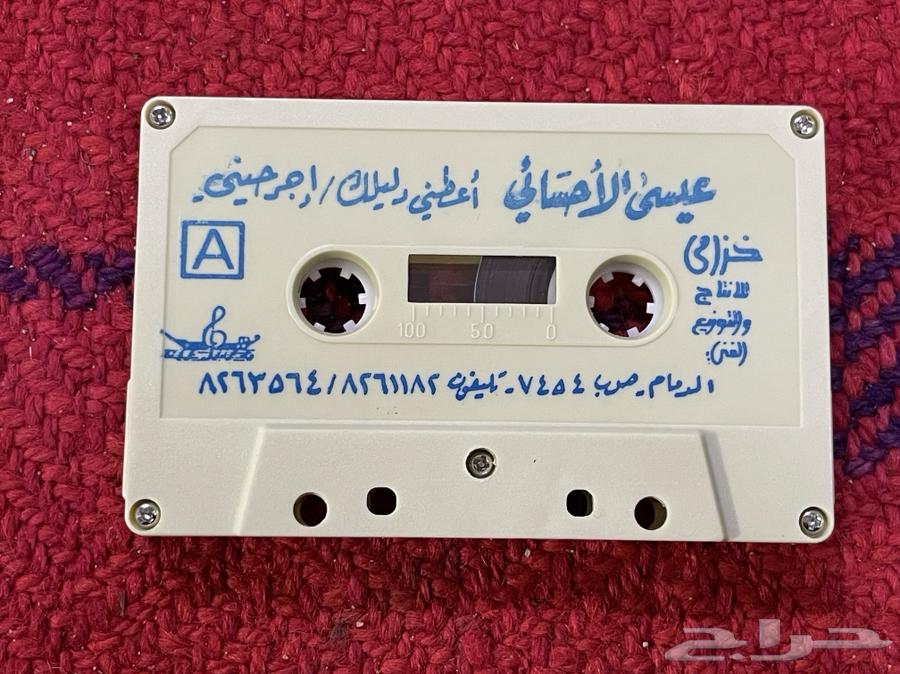 عيسى الأحسائي أعطني دليلك / إجرحيني
A
خزامى
للانتاج
والتوزيع
الفني
100 50 0
الدمام ـ ص ب ٧٤٥٤ ـ تليفون ٨٢٦١١٨٢ / ٨٢٦٣٥٦٤
حراج